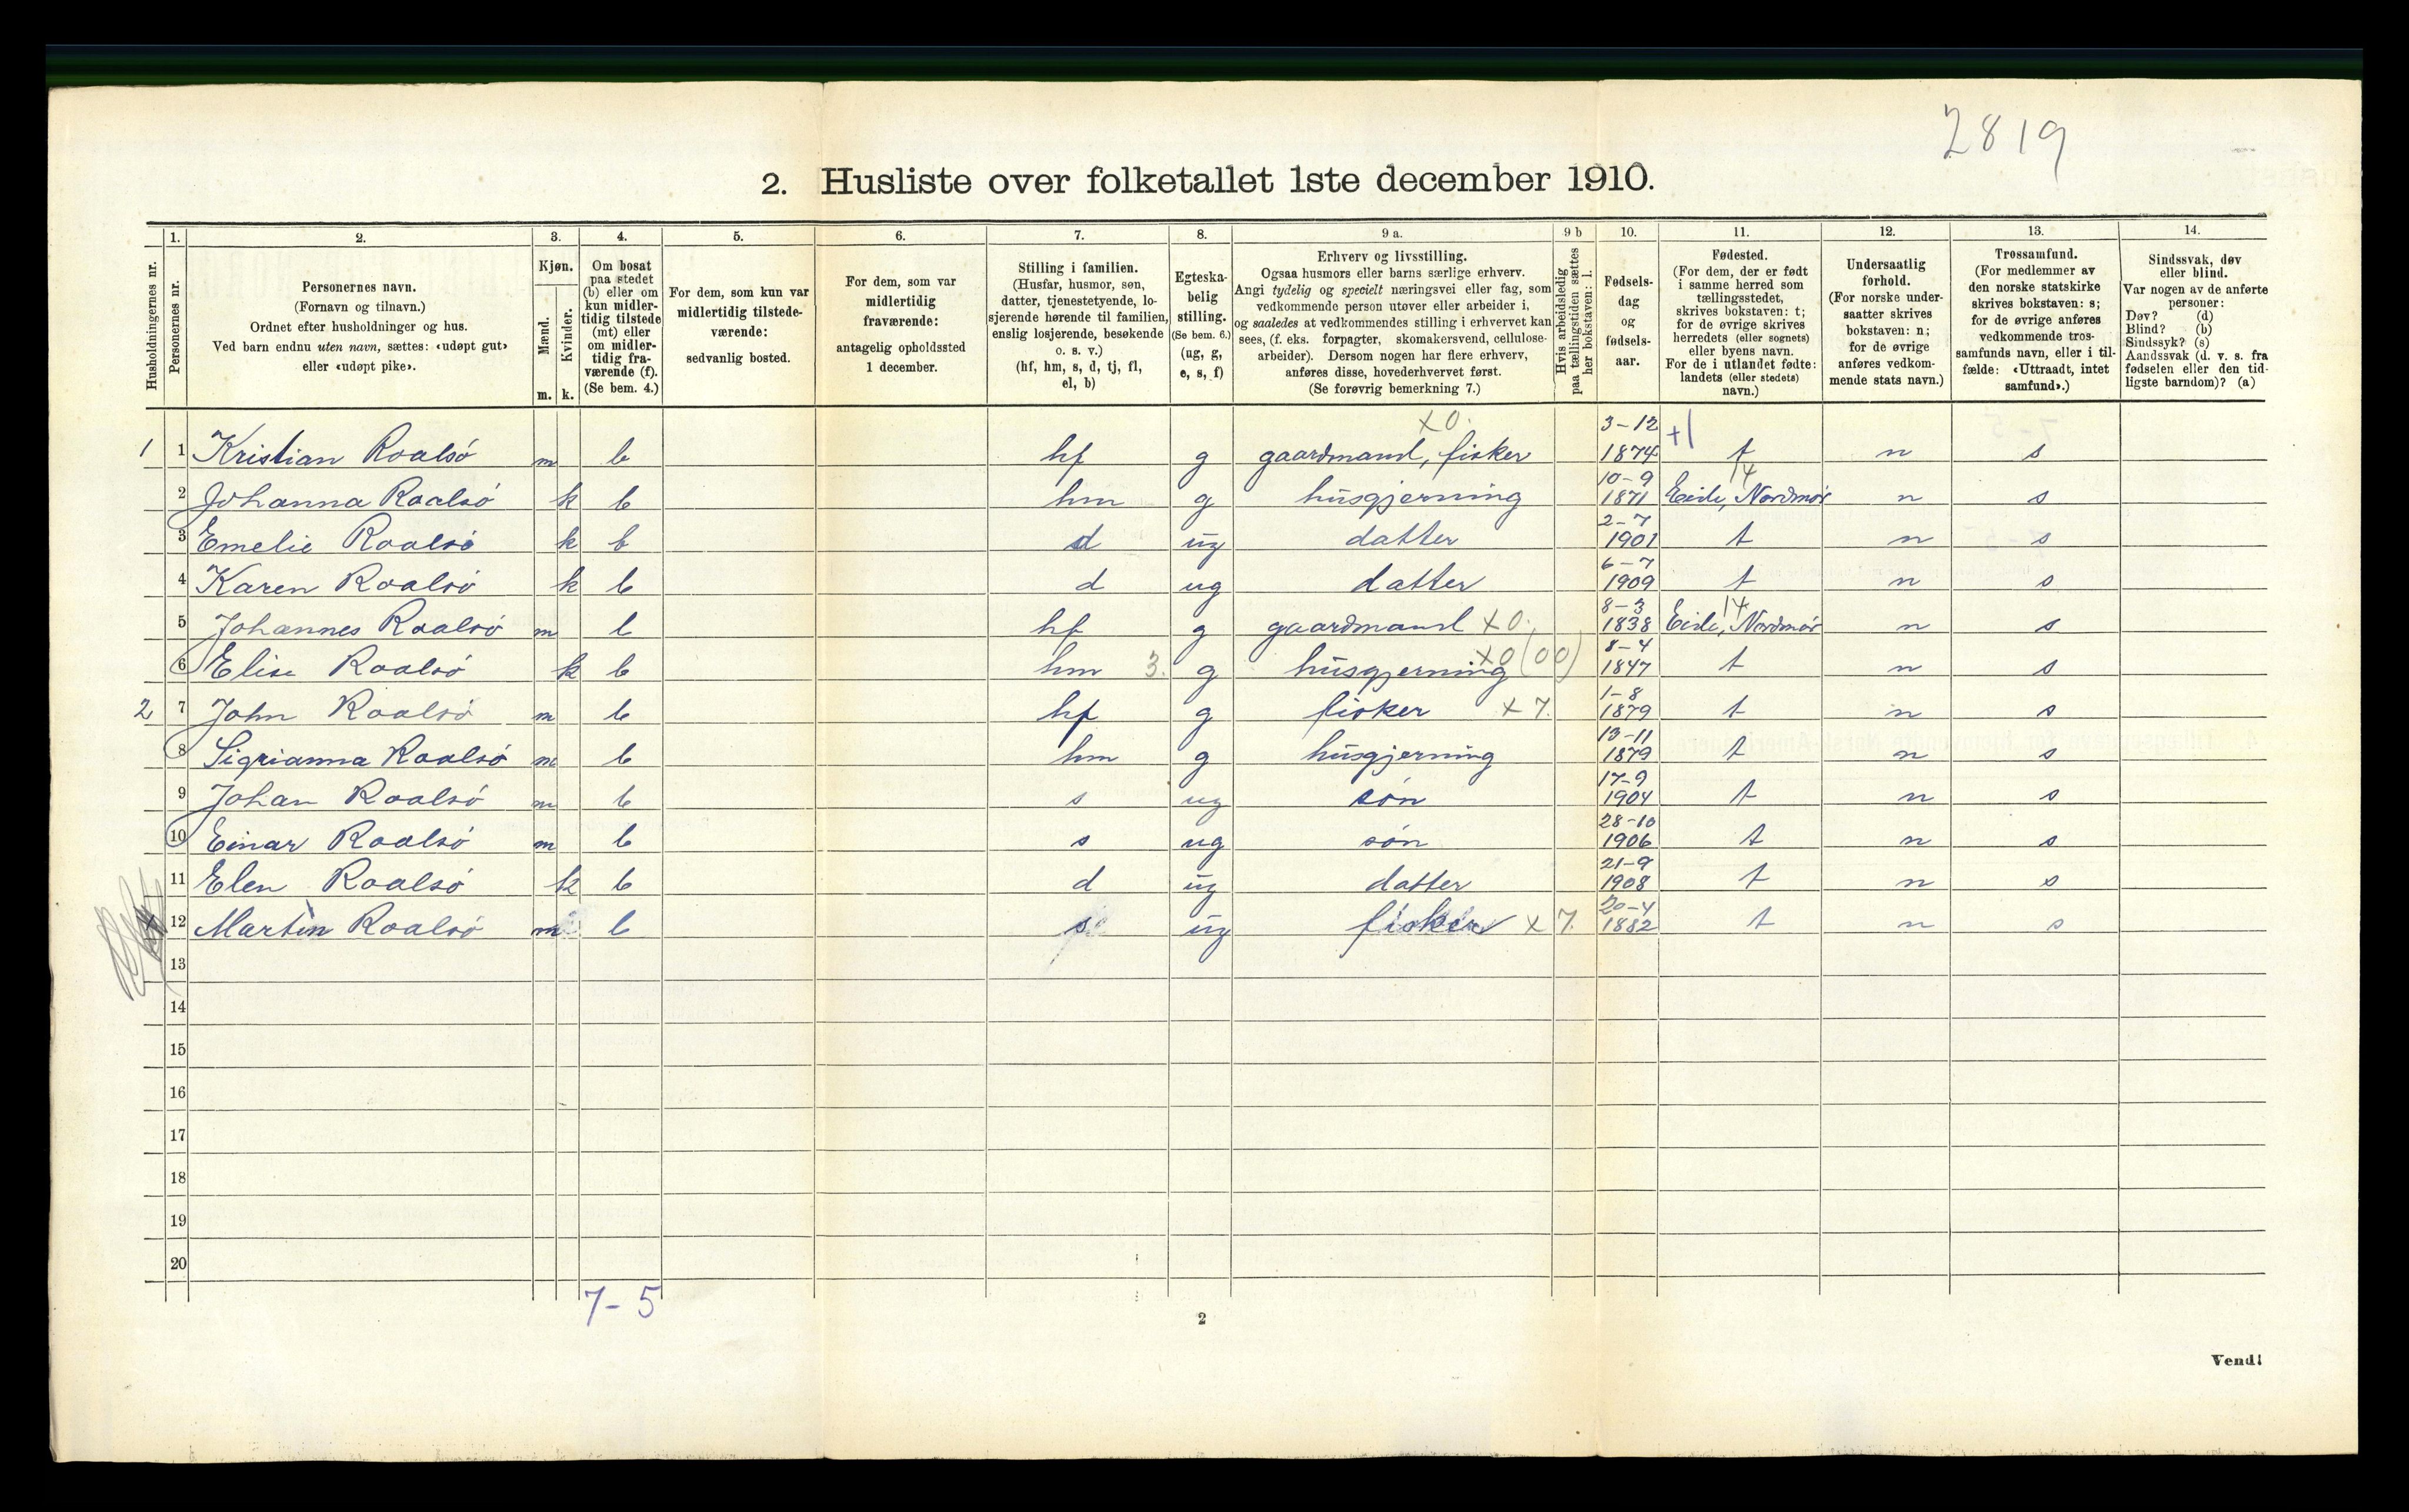 2819
2. Husliste over folketallet 1ste december 1910.
Husholdningernes nr.
1. Personernes nr.
2. Personernes navn.
(Fornavn og tilnavn.)
Ordnet efter husholdninger og hus.
Ved barn endnu uten navn, sættes: «udøpt gut»
eller «udøpt pike».
3. Kjøn.
Mænd. m.
Kvinder. k.
4. Om bosat
paa stedet
(b) eller om
kun midler-
tidig tilstede
(mt) eller
om midler-
tidig fra-
værende (f).
(Se bem. 4.)
5. For dem, som kun var
midlertidig tilstede-
værende:
sedvanlig bosted.
6. For dem, som var
midlertidig
fraværende:
antagelig opholdssted
1 december.
7. Stilling i familien.
(Husfar, husmor, søn,
datter, tjenestetyende, lo-
sjerende hørende til familien,
enslig losjerende, besøkende
o. s. v.)
(hf, hm, s, d, tj, fl,
el, b)
8. Egteska-
belig
stilling.
(Se bem. 6.)
(ug, g,
e, s, f)
9 a. Erhverv og livsstilling.
Ogsaa husmors eller barns særlige erhverv.
Angi tydelig og specielt næringsvei eller fag, som
vedkommende person utøver eller arbeider i,
og saaledes at vedkommendes stilling i erhvervet kan
sees, (f. eks. forpagter, skomakersvend, cellulose-
arbeider). Dersom nogen har flere erhverv,
anføres disse, hovederhvervet først.
(Se forøvrig bemerkning 7.)
9 b Hvis arbeidsledig
paa tællingstiden sættes
her bokstaven: l.
10. Fødsels-
dag
og
fødsels-
aar.
11. Fødested.
(For dem, der er født
i samme herred som
tællingsstedet,
skrives bokstaven: t;
for de øvrige skrives
herredets (eller sognets)
eller byens navn.
For de i utlandet fødte:
landets (eller stedets)
navn.)
12. Undersaatlig
forhold.
(For norske under-
saatter skrives
bokstaven: n;
for de øvrige
anføres vedkom-
mende stats navn.)
13. Trossamfund.
(For medlemmer av
den norske statskirke
skrives bokstaven: s;
for de øvrige anføres
vedkommende tros-
samfunds navn, eller i til-
fælde: «Uttraadt, intet
samfund».)
14. Sindssvak, døv
eller blind.
Var nogen av de anførte
personer:
Døv? (d)
Blind? (b)
Sindssyk? (s)
Aandssvak (d. v. s. fra
fødselen eller den tid-
ligste barndom)? (a)
1 1 Kristian Roalsø m b hf g gaardmand, fisker x0. 3-12 1874 +1 t n s
2 Johanna Roalsø k b hm g husgjerning 10-9 1871 Eide, Nordmør 14 n s
3 Emelie Roalsø k b d ug datter 2-7 1901 t n s
4 Karen Roalsø k b d ug datter 6-7 1909 t n s
5 Johannes Roalsø m b hf g gaardmand x0. 8-3 1838 Eide, Nordmør 14 n s
6 Elise Roalsø k b hm 3. g husgjerning x0(00) 8-4 1847 t n s
2 7 John Roalsø m b hf g fisker x7. 1-8 1879 t n s
8 Sigrianna Roalsø m b hm g husgjerning 13-11 1879 t n s
9 Johan Roalsø m b s ug søn 17-9 1904 t n s
10 Einar Roalsø m b s ug søn 28-10 1906 t n s
11 Elen Roalsø k b d ug datter 21-9 1908 t n s
12 Martin Roalsø m b s ug fisker x 7. 20-4 1882 t n s
13
14
15
16
17
18
19
20
7-5
2
Vend!